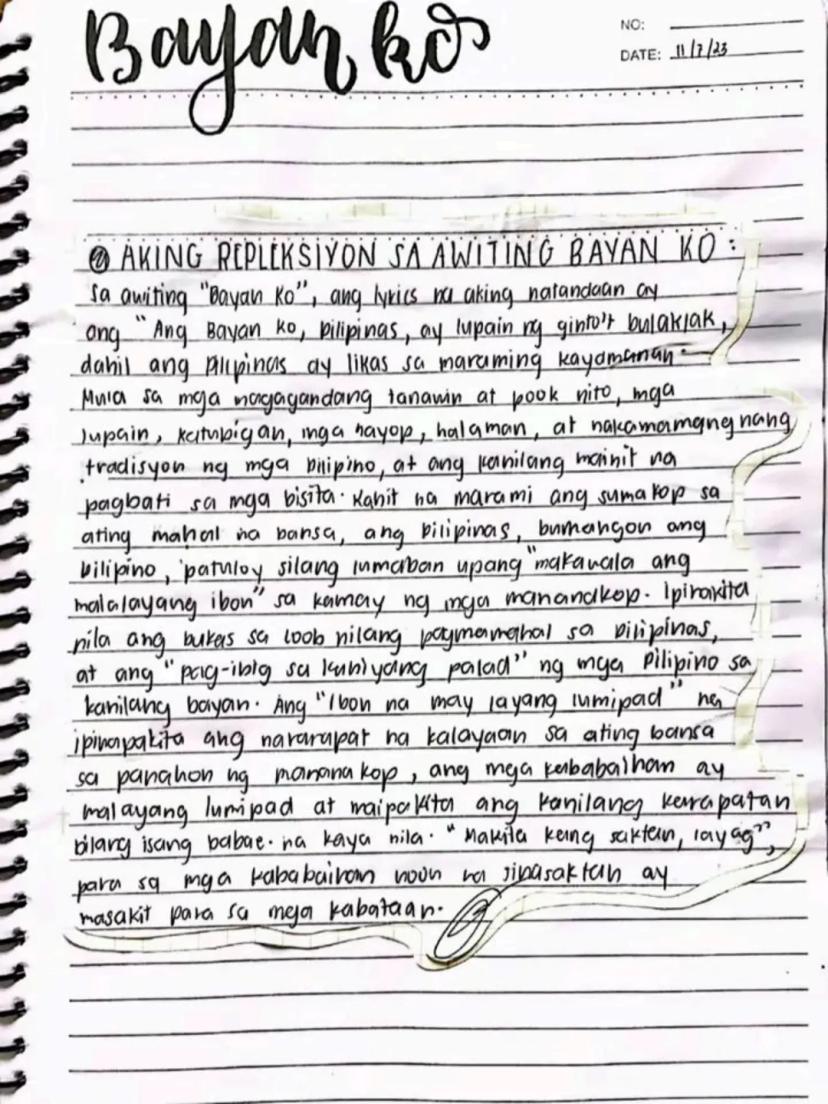 Bayan ko
NO:
DATE: 11/7/23
AKING REPLEKSIYON SA AWITING BAYAN KO :
Sa awiting "Bayan Ko", ang lyrics na aking natandaan ay
ang "Ang Bayan ko, pilipinas, ay lupain ng ginto't bulaklak,
dahil ang Pilipinas ay likas sa maraming kayamanan.
Mula sa mga nagagandang tanawin at pook nito, mga
lupain, katubigan, mga hayop, halaman, at nakamamangnang
tradisyon ng mga pilipino, at ang kanilang mainit na
pagbati sa mga bisita. Kahit na marami ang sumakop sa
ating mahal na bansa, ang pilipinas, bumangon ang
pilipino, patuloy silang lumaban upang "makawala ang
malalayang ibon" sa kamay ng mga manankop. Ipinakita
nila ang bukas sa loob nilang pagmamahal sa pilipinas,
at ang "pag-ibig sa kaniyang palad" ng mga Pilipino sa
kanilang bayan. Ang "Ibon na may layang lumipad" na
ipinapakita ang nararapat na kalayaan sa ating bansa
sa panahon ng mananakop, ang mga kababaihan ay
malayang lumipad at maipakita ang kanilang karapatan
bilang isang babae. na kaya nila. " saktan,
para sa mga kababaihan noon na sinasaktan ay
masakit para sa mga kabataan.